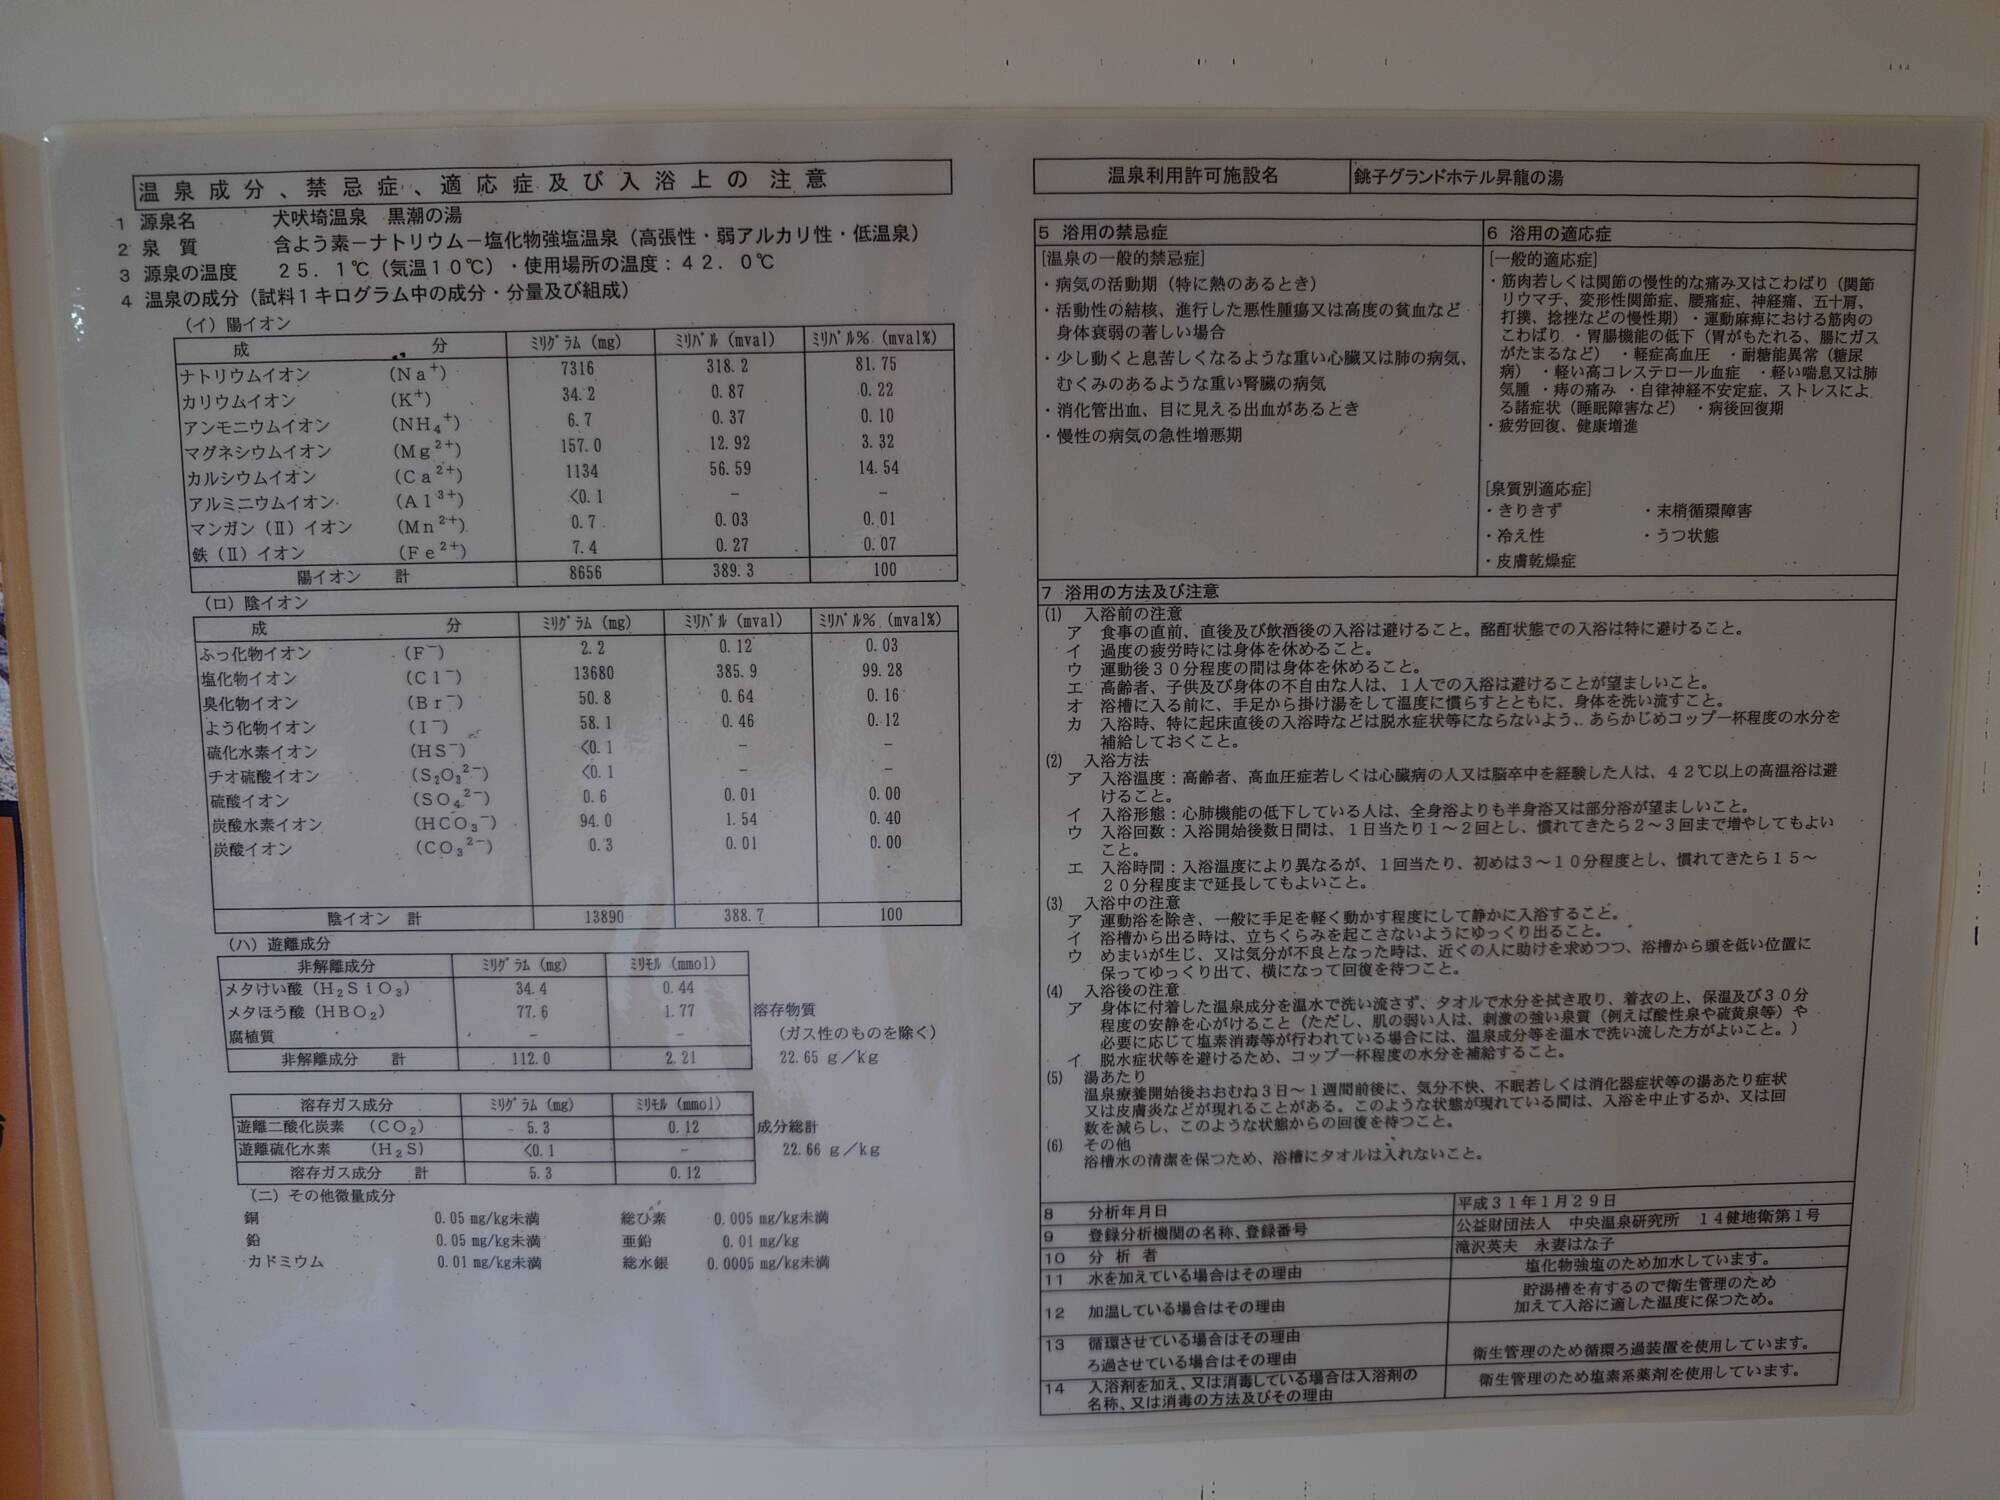 温泉成分、禁忌症、適応症及び入浴上の注意
1 源泉名 犬吠埼温泉 黒潮の湯
2 泉 質 含よう素－ナトリウム－塩化物強塩温泉（高張性・弱アルカリ性・低温泉）
3 源泉の温度 ２５．１℃（気温１０℃）・使用場所の温度：４２．０℃
4 温泉の成分（試料１キログラム中の成分・分量及び組成）
（イ）陽イオン
成 分 ﾐﾘｸﾞﾗﾑ (mg) ﾐﾘﾊﾞﾙ (mval) ﾐﾘﾊﾞﾙ% (mval%)
ナトリウムイオン (Na⁺) 7316 318.2 81.75
カリウムイオン (K⁺) 34.2 0.87 0.22
アンモニウムイオン (NH₄⁺) 6.7 0.37 0.10
マグネシウムイオン (Mg²⁺) 157.0 12.92 3.32
カルシウムイオン (Ca²⁺) 1134 56.59 14.54
アルミニウムイオン (Al³⁺) <0.1 － －
マンガン（Ⅱ）イオン (Mn²⁺) 0.7 0.03 0.01
鉄（Ⅱ）イオン (Fe²⁺) 7.4 0.27 0.07
陽イオン 計 8656 389.3 100
（ロ）陰イオン
成 分 ﾐﾘｸﾞﾗﾑ (mg) ﾐﾘﾊﾞﾙ (mval) ﾐﾘﾊﾞﾙ% (mval%)
ふっ化物イオン (F⁻) 2.2 0.12 0.03
塩化物イオン (Cl⁻) 13680 385.9 99.28
臭化物イオン (Br⁻) 50.8 0.64 0.16
よう化物イオン (I⁻) 58.1 0.46 0.12
硫化水素イオン (HS⁻) <0.1 － －
チオ硫酸イオン (S₂O₃²⁻) <0.1 － －
硫酸イオン (SO₄²⁻) 0.6 0.01 0.00
炭酸水素イオン (HCO₃⁻) 94.0 1.54 0.40
炭酸イオン (CO₃²⁻) 0.3 0.01 0.00
陰イオン 計 13890 388.7 100
（ハ）遊離成分
非解離成分 ﾐﾘｸﾞﾗﾑ (mg) ﾐﾘﾓﾙ (mmol)
メタけい酸（H₂SiO₃） 34.4 0.44
メタほう酸（HBO₂） 77.6 1.77
腐植質 － －
非解離成分 計 112.0 2.21
溶存物質
（ガス性のものを除く）
22.65 g／kg
溶存ガス成分 ﾐﾘｸﾞﾗﾑ (mg) ﾐﾘﾓﾙ (mmol)
遊離二酸化炭素 （CO₂） 5.3 0.12
遊離硫化水素 （H₂S） <0.1 －
溶存ガス成分 計 5.3 0.12
成分総計
22.66 g／kg
（ニ）その他微量成分
銅 0.05 mg/kg未満 総ひ素 0.005 mg/kg未満
鉛 0.05 mg/kg未満 亜鉛 0.01 mg/kg
カドミウム 0.01 mg/kg未満 総水銀 0.0005 mg/kg未満
温泉利用許可施設名 銚子グランドホテル昇龍の湯
5 浴用の禁忌症
[温泉の一般的禁忌症]
・病気の活動期（特に熱のあるとき）
・活動性の結核、進行した悪性腫瘍又は高度の貧血など
身体衰弱の著しい場合
・少し動くと息苦しくなるような重い心臓又は肺の病気、
むくみのあるような重い腎臓の病気
・消化管出血、目に見える出血があるとき
・慢性の病気の急性増悪期
6 浴用の適応症
[一般的適応症]
・筋肉若しくは関節の慢性的な痛み又はこわばり（関節
リウマチ、変形性関節症、腰痛症、神経痛、五十肩、
打撲、捻挫などの慢性期）・運動麻痺における筋肉の
こわばり ・胃腸機能の低下（胃がもたれる、腸にガス
がたまるなど） ・軽症高血圧 ・耐糖能異常（糖尿
病）・軽い高コレステロール血症 ・軽い喘息又は肺
気腫 ・痔の痛み ・自律神経不安定症、ストレスによ
る諸症状（睡眠障害など） ・病後回復期
・疲労回復、健康増進
[泉質別適応症]
・きりきず ・末梢循環障害
・冷え性 ・うつ状態
・皮膚乾燥症
7 浴用の方法及び注意
(1) 入浴前の注意
ア 食事の直前、直後及び飲酒後の入浴は避けること。酩酊状態での入浴は特に避けること。
イ 過度の疲労時には身体を休めること。
ウ 運動後３０分程度の間は身体を休めること。
エ 高齢者、子供及び身体の不自由な人は、１人での入浴は避けることが望ましいこと。
オ 浴槽に入る前に、手足から掛け湯をして温度に慣らすとともに、身体を洗い流すこと。
カ 入浴時、特に起床直後の入浴時などは脱水症状等にならないよう、あらかじめコップ一杯程度の水分を
補給しておくこと。
(2) 入浴方法
ア 入浴温度：高齢者、高血圧症若しくは心臓病の人又は脳卒中を経験した人は、４２℃以上の高温浴は避
けること。
イ 入浴形態：心肺機能の低下している人は、全身浴よりも半身浴又は部分浴が望ましいこと。
ウ 入浴回数：入浴開始後数日間は、１日当たり１～２回とし、慣れてきたら２～３回まで増やしてもよい
こと。
エ 入浴時間：入浴温度により異なるが、１回当たり、初めは３～１０分程度とし、慣れてきたら１５～
２０分程度まで延長してもよいこと。
(3) 入浴中の注意
ア 運動浴を除き、一般に手足を軽く動かす程度にして静かに入浴すること。
イ 浴槽から出る時は、立ちくらみを起こさないようにゆっくり出ること。
ウ めまいが生じ、又は気分が不良となった時は、近くの人に助けを求めつつ、浴槽から頭を低い位置に
保ってゆっくり出て、横になって回復を待つこと。
(4) 入浴後の注意
ア 身体に付着した温泉成分を温水で洗い流さず、タオルで水分を拭き取り、着衣の上、保温及び３０分
程度の安静を心がけること（ただし、肌の弱い人は、刺激の強い泉質（例えば酸性泉や硫黄泉等）や
必要に応じて塩素消毒等が行われている場合には、温泉成分等を温水で洗い流した方がよいこと。）
イ 脱水症状等を避けるため、コップ一杯程度の水分を補給すること。
(5) 湯あたり
温泉療養開始後おおむね３日～１週間前後に、気分不快、不眠若しくは消化器症状等の湯あたり症状
又は皮膚炎などが現れることがある。このような状態が現れている間は、入浴を中止するか、又は回
数を減らし、このような状態からの回復を待つこと。
(6) その他
浴槽水の清潔を保つため、浴槽にタオルは入れないこと。
8 分析年月日 平成３１年１月２９日
9 登録分析機関の名称、登録番号 公益財団法人 中央温泉研究所 １４健地衛第１号
10 分 析 者 滝沢英夫 永妻はな子
11 水を加えている場合はその理由 塩化物強塩のため加水しています。
12 加温している場合はその理由 貯湯槽を有するので衛生管理のため
加えて入浴に適した温度に保つため。
13 循環させている場合はその理由
ろ過させている場合はその理由 衛生管理のため循環ろ過装置を使用しています。
14 入浴剤を加え、又は消毒している場合は入浴剤の
名称、又は消毒の方法及びその理由 衛生管理のため塩素系薬剤を使用しています。